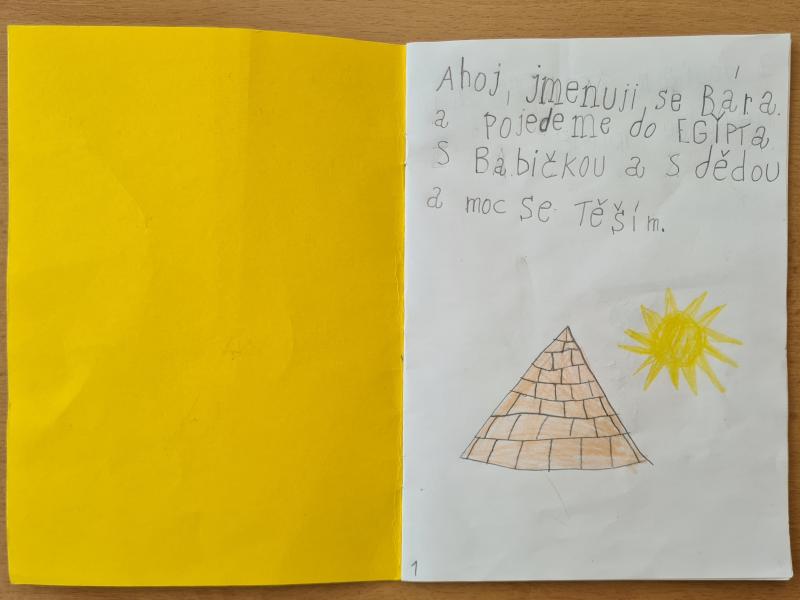 Ahoj, jmenuji se Bára.
a pojedeme do EGYPTa
S BabičKOU a s dědou
a moc se Těším.
1